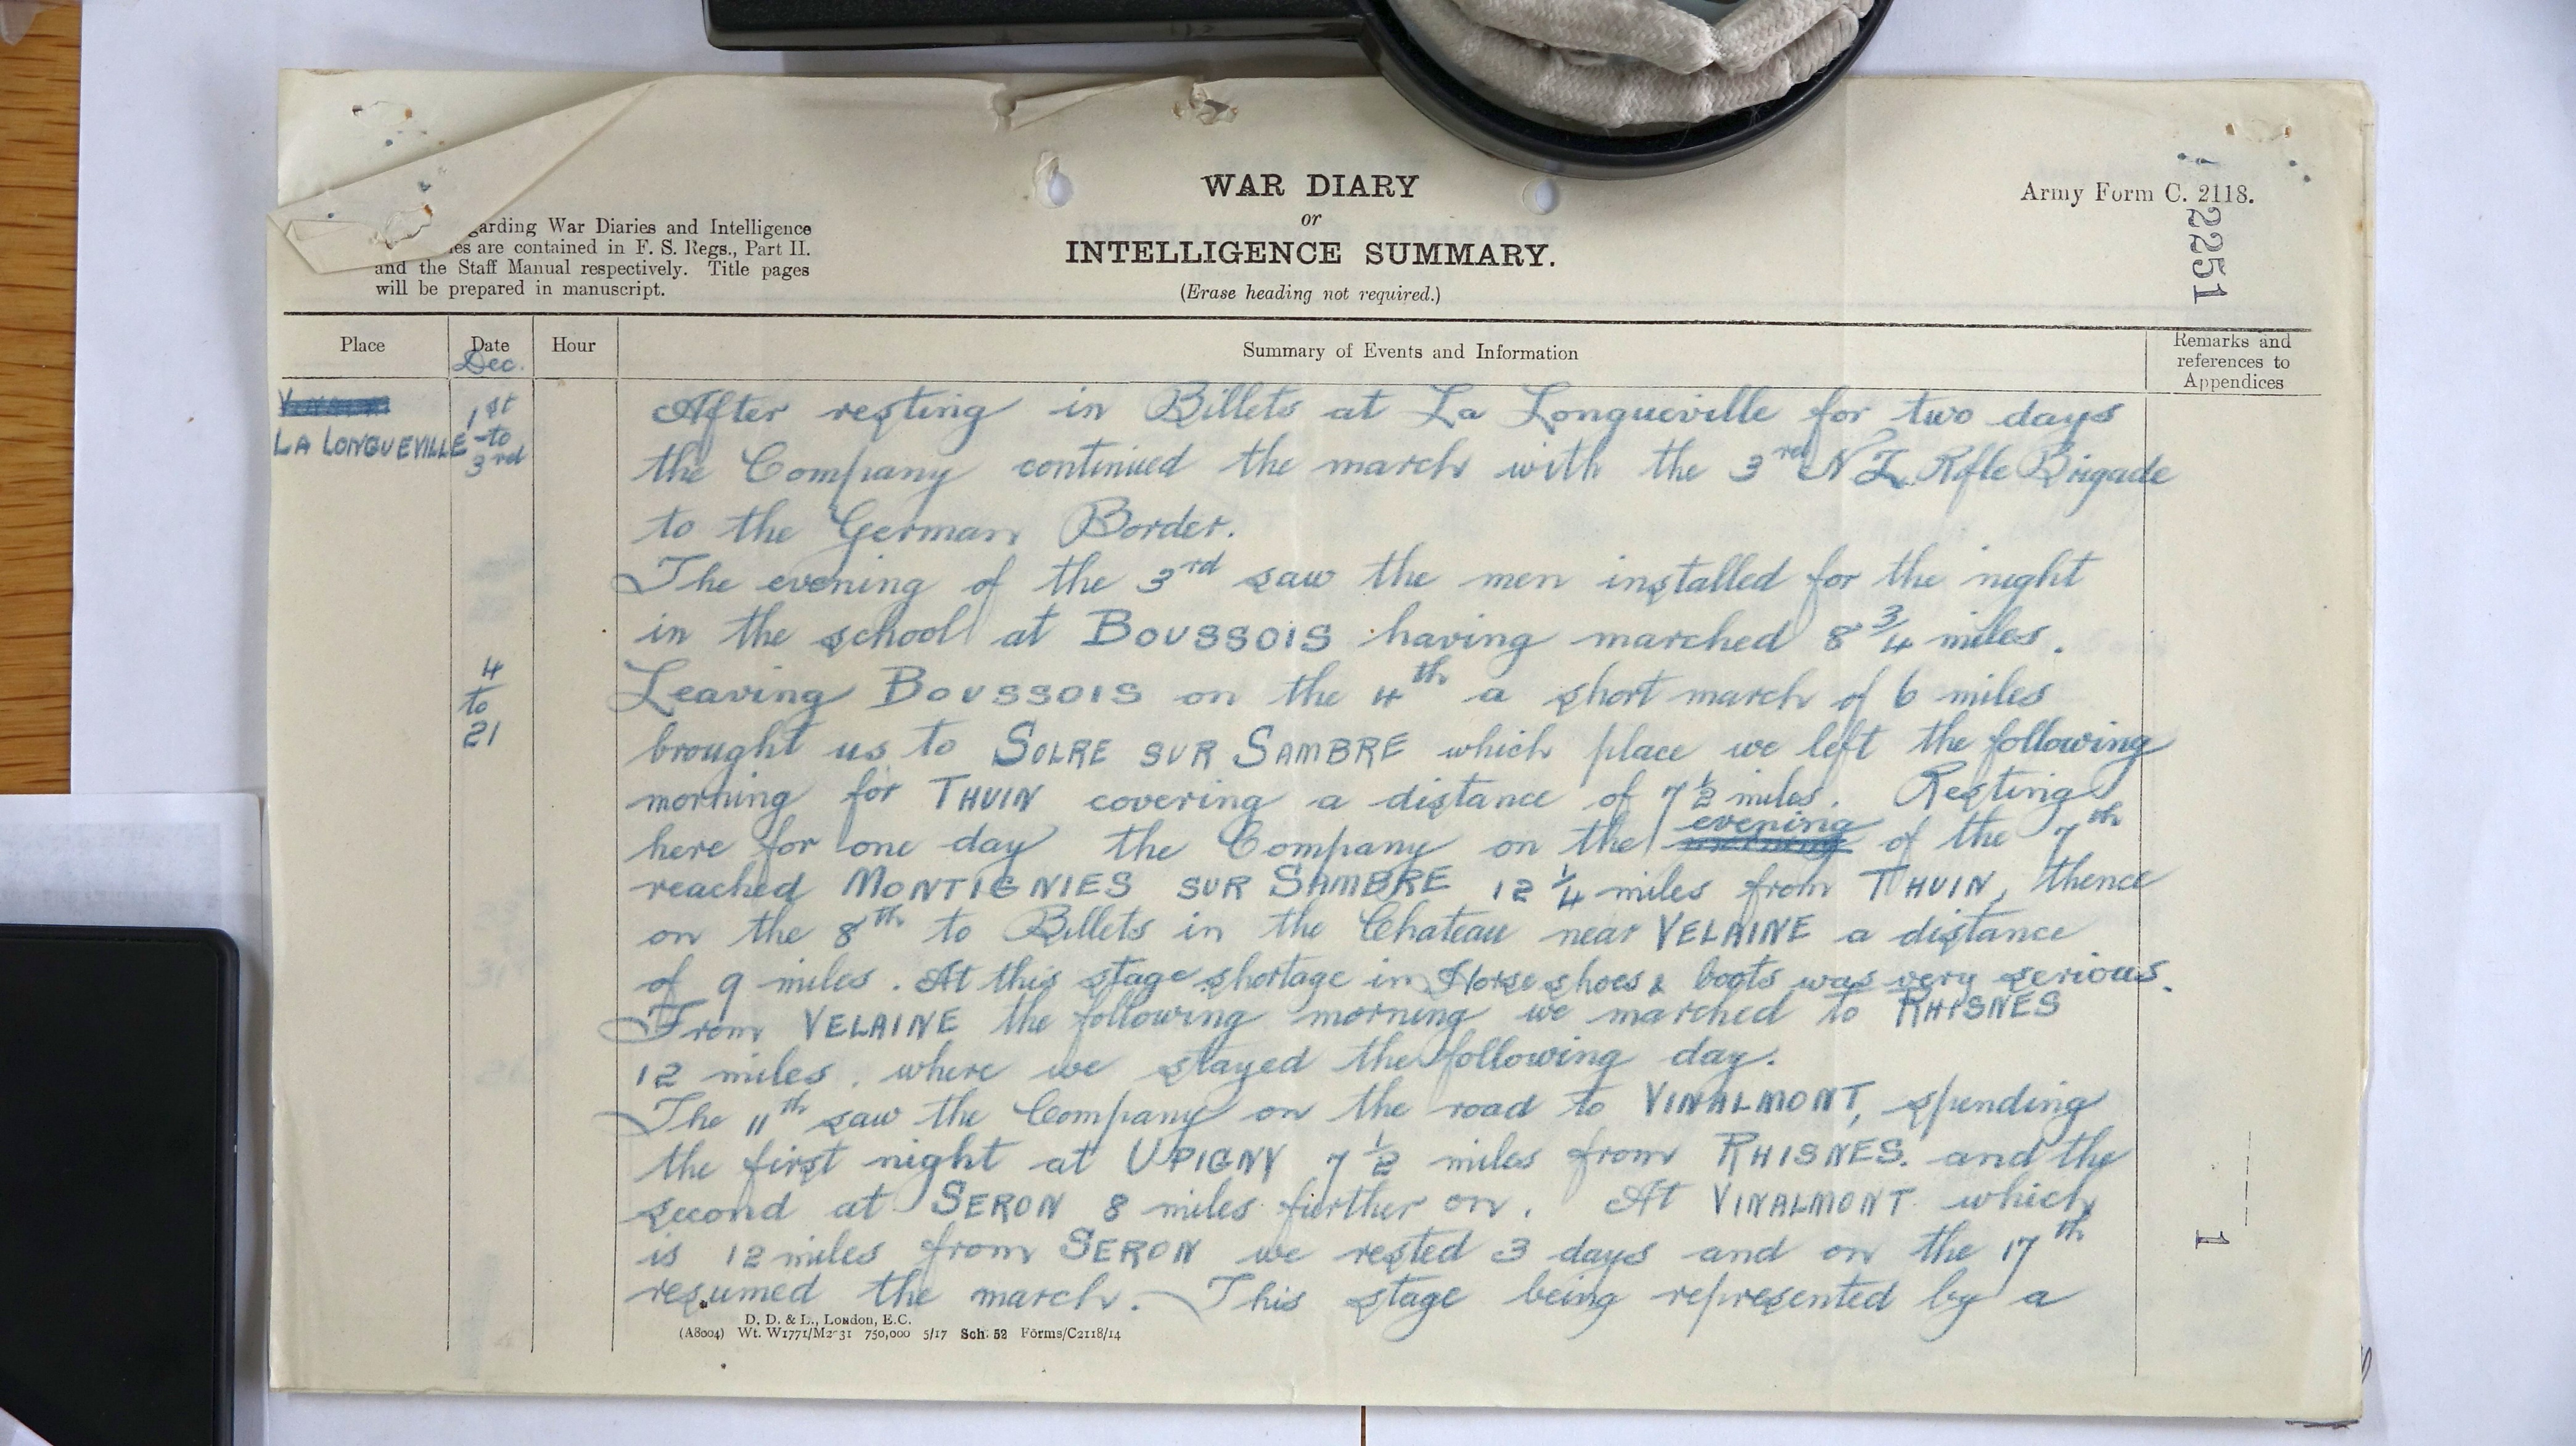 WAR DIARY
or
INTELLIGENCE SUMMARY.
(Erase heading not required.)
Army Form C. 2118.
2251
garding War Diaries and Intelligence
ies are contained in F. S. Regs., Part II.
and the Staff Manual respectively. Title pages
will be prepared in manuscript.
Place
Date
Hour
Summary of Events and Information
Remarks and
references to
Appendices
Dec.
LA LONGUEVILLE
1st
to
3rd
After resting in Billets at La Longueville for two days
the Company continued the march with the 3rd N Z Rifle Brigade
to the German Border.
The evening of the 3rd saw the men installed for the night
in the school at BOUSSOIS having marched 8 3/4 miles.
4
to
21
Leaving BOUSSOIS on the 4th a short march of 6 miles
brought us to SOLRE SUR SAMBRE which place we left the following
morning for THUIN covering a distance of 7 1/2 miles. Resting
here for one day the Company on the evening of the 7th
reached MONTIGNIES SUR SAMBRE 12 1/4 miles from THUIN, thence
on the 8th to Billets in the Chateau near VELAINE a distance
of 9 miles. At this stage shortage in Horse shoes & boots was very serious.
From VELAINE the following morning we marched to RHISNES
12 miles, where we stayed the following day.
The 11th saw the Company on the road to VINALMONT, spending
the first night at UPIGNY 7 1/2 miles from RHISNES. and the
second at SERON 8 miles further on. At VINALMONT which
is 12 miles from SERON we rested 3 days and on the 17th
resumed the march. This stage being represented by a
1
D. D. & L., London, E.C.
(A8004) Wt. W1771/M2031 750,000 5/17 Sch. 52 Forms/C2118/14